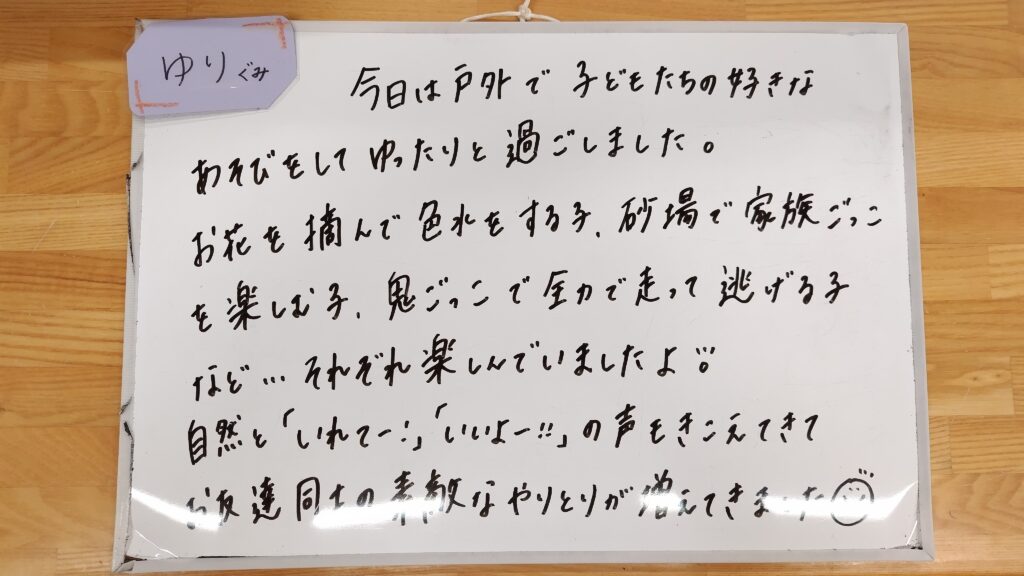 ゆりぐみ
今日は戸外で子どもたちの好きな
あそびをしてゆったりと過ごしました。
お花を摘んで色水をする子、砂場で家族ごっこ
を楽しむ子、鬼ごっこで全力で走って逃げる子
など…それぞれ楽しんでいましたよ。
自然と「いれてー!」「いいよー!!」の声もきこえてきて
お友達同士の素敵なやりとりが増えてきました